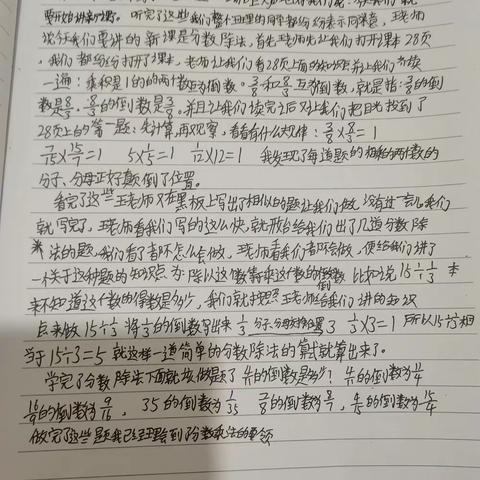 要开始讲新课。听完了这些我们整个五理的同学都纷纷表示同意，王老师
说今天我们要讲的新课是分数除法，首先王老师先让我们打开课本28页
，我们都纷纷打开了课本，老师让我们看28页上面的知识并让我们齐读
一遍：乘积是1的的两个数互为倒数。3/8和8/3互为倒数，就是指：3/8的倒
数是8/3，8/3的倒数是3/8。并且让我们读完之后又让我们把目光找到了
28页上的第一题：先计算，再观察，看看有什么规律：3/8×8/3=1
7/15×15/7=1 5×1/5=1 1/12×12=1 我发现了每道题的相乘的两个数的
分子、分母正好颠倒了位置。
看完了这些王老师又在黑板上写出了相似的题让我们做，没有过一会儿我们
就写完了，王老师看我们写的这么快，就开始给我们出了几道分数除
法的题，我们看了看不怎么会做，王老师看我们不会做，便给我们讲了
一个关于这种题的知识点为：除以这个数等于乘这个数的倒数 比如说15÷1/3 本
来不知道这个数的得数是多少，我们就按照王老师给我们讲的知识
点来做15÷1/3 将1/3的倒数写出来 1/3 分子、分母 3 1/3×3=1 所以15÷1/3相
当于15÷3=5 就这样一道简单的分数除法的算式就算出来了。
学完了分数除法下面就该做题了 4/11的倒数是多少？4/11的倒数为11/4
16/9的倒数为9/16，35的倒数为1/35 7/8的倒数为8/7，4/15的倒数为15/4
做完了这些题我已经理会到分数乘法的要领